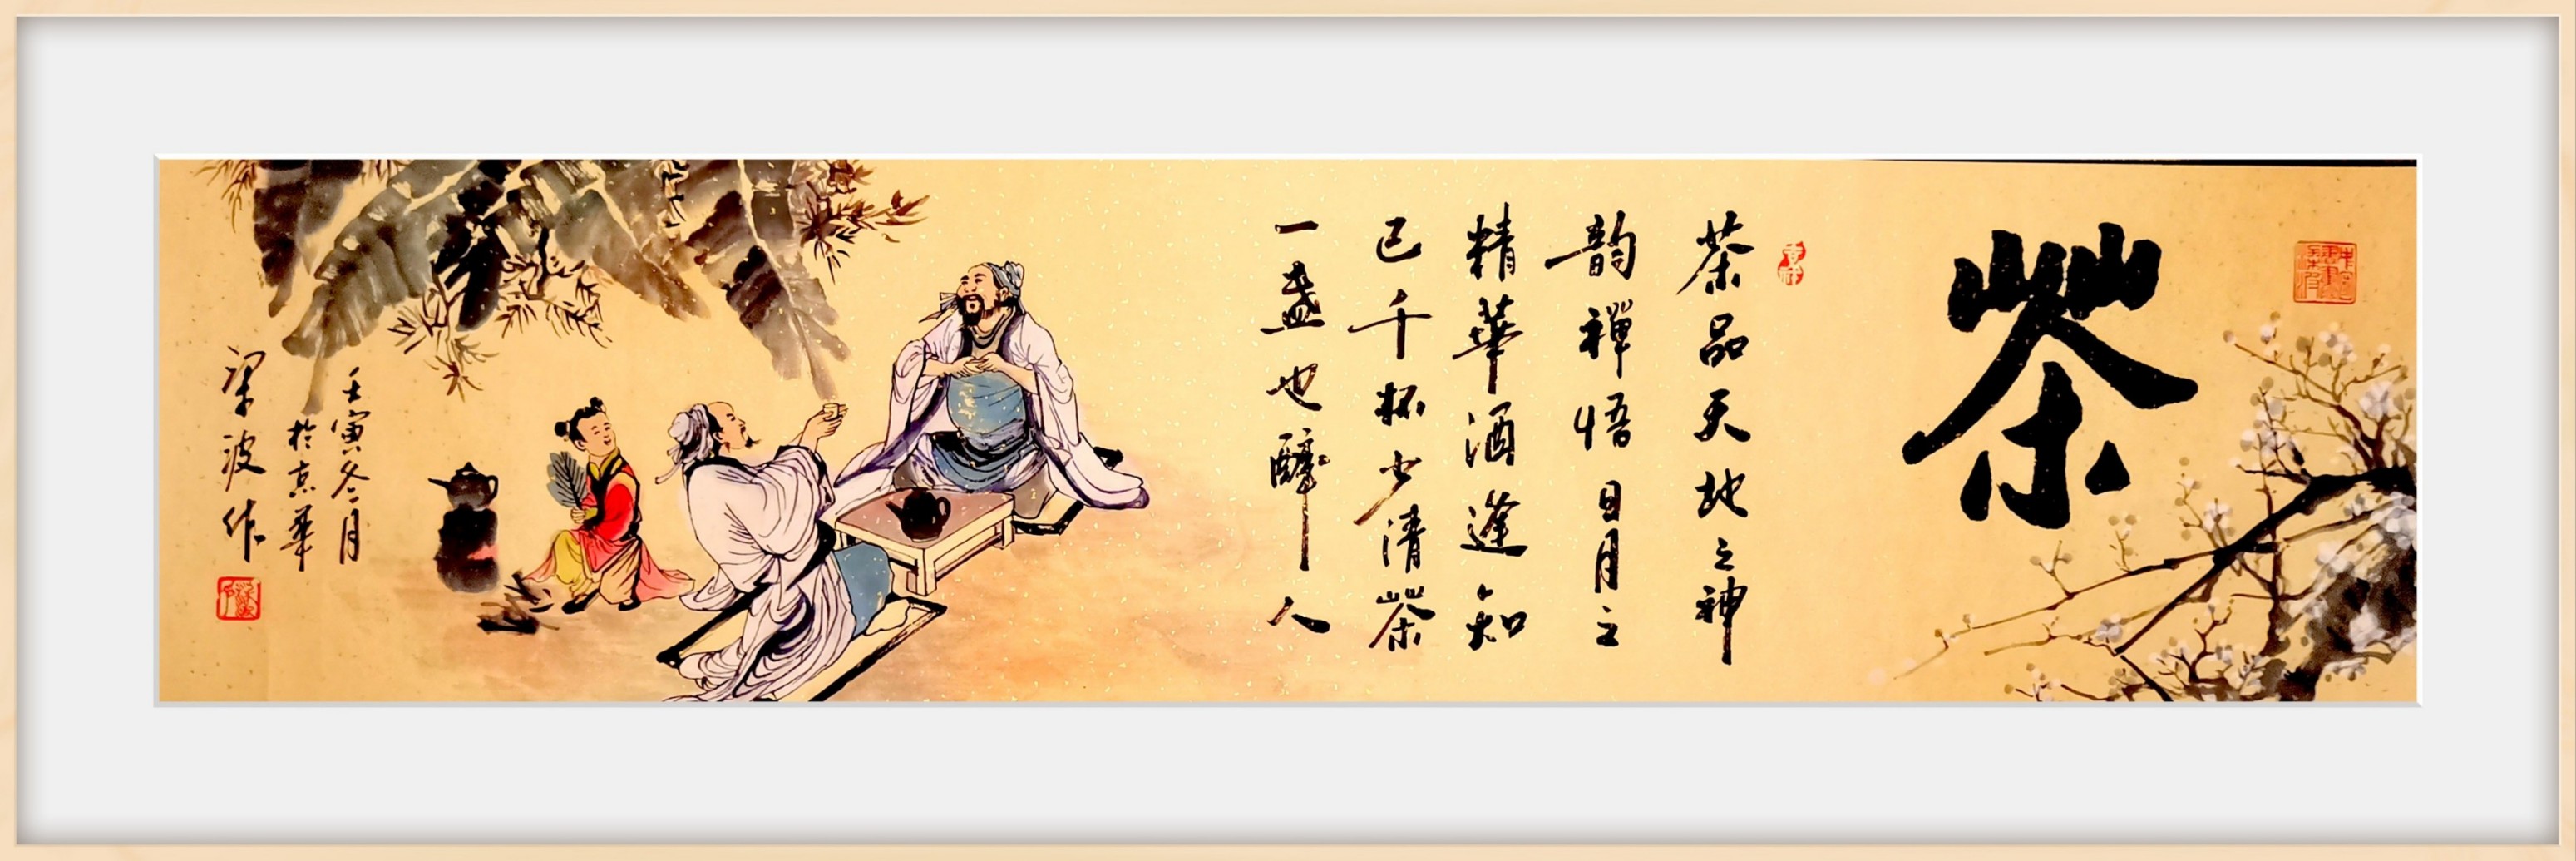 茶
茶品天地之神
韵禅悟日月之
精華酒逢知
己千杯少清茶
一盏也醉人
壬寅冬月
於京華
梁波作